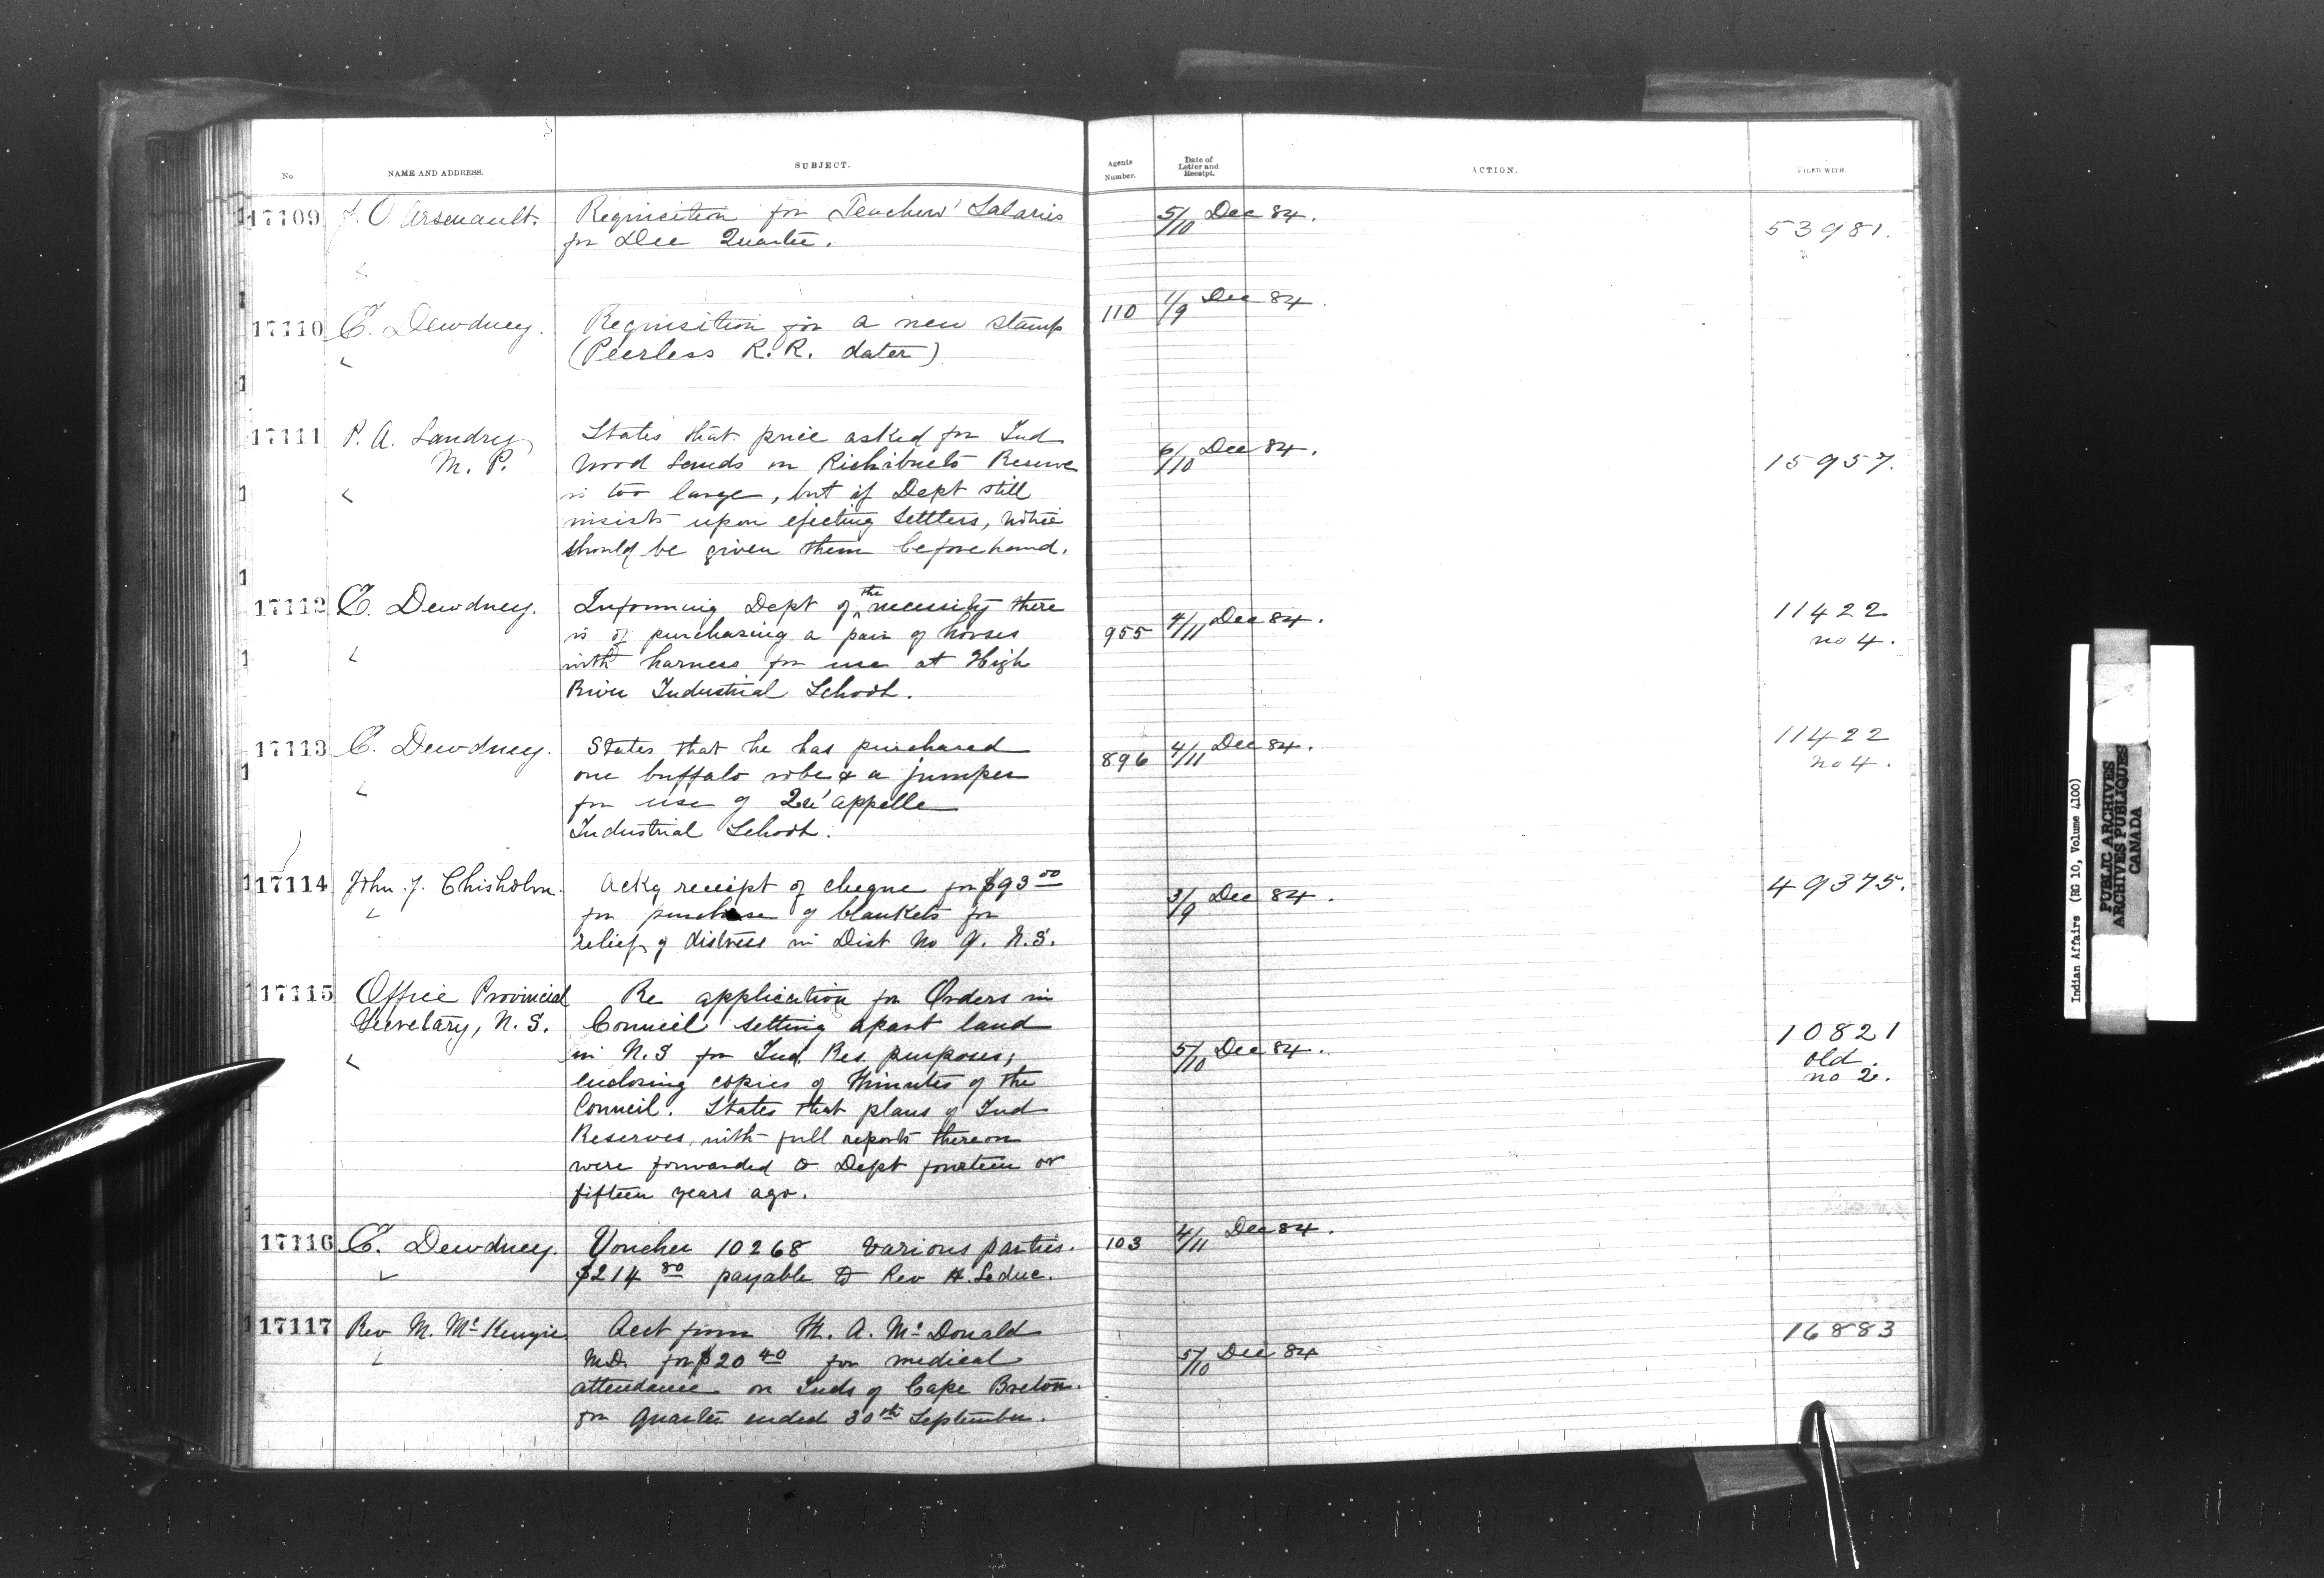 No
NAME AND ADDRESS.
SUBJECT.
Agents
Number.
Date of
Letter and
Receipt.
ACTION.
FILED WITH.
17109 J. O. Arsenault. Requisition for Teachers' Salaries 5/10 Dec 84. 53981.
for Dec Quarter.
17110 E. Dewdney. Requisition for a new stamp 110 1/9 Dec 84.
(Peerless R. R. dater)
17111 P. A. Landry States that price asked for Ind
M. P. Wood Lands on Richibucto Reserve 6/10 Dec 84. 15957.
is too large, but if Dept still
insists upon ejecting settlers, notice
should be given them beforehand.
17112 E. Dewdney. Informing Dept of the necessity there 11422
is of purchasing a pair of horses 955 4/11 Dec 84. no 4.
with harness for use at High
River Industrial School.
17113 E. Dewdney. States that he has purchased 896 4/11 Dec 84. 11422
one buffalo robe & a jumper no 4.
for use of Qu'appelle
Industrial School.
17114 John J. Chisholm. Ackg receipt of cheque for $93 00 49375.
for purchase of blankets for 3/9 Dec 84.
relief of distress in Dist No 9. N.S.
17115 Office Provincial Re application for Orders in
Secretary, N. S. Council setting apart land 10821
in N.S for Ind. Res. purposes; 5/10 Dec 84. old.
enclosing copies of Minutes of the no 2.
Council. States that plans of Ind
Reserves, with full reports thereon
were forwarded to Dept fourteen or
fifteen years ago.
17116 E. Dewdney. Voucher 10268 various parties. 103 4/11 Dec 84.
$214 80 payable to Rev H. Leduc.
17117 Rev M. McKenzie Acct from M. A. McDonald 16883
M.D. for $20 40 for medical 5/10 Dec 84
attendance on Inds of Cape Breton.
for Quarter ended 30th September.
Indian Affairs (RG 10, Volume 4100)
PUBLIC ARCHIVES
ARCHIVES PUBLIQUES
CANADA